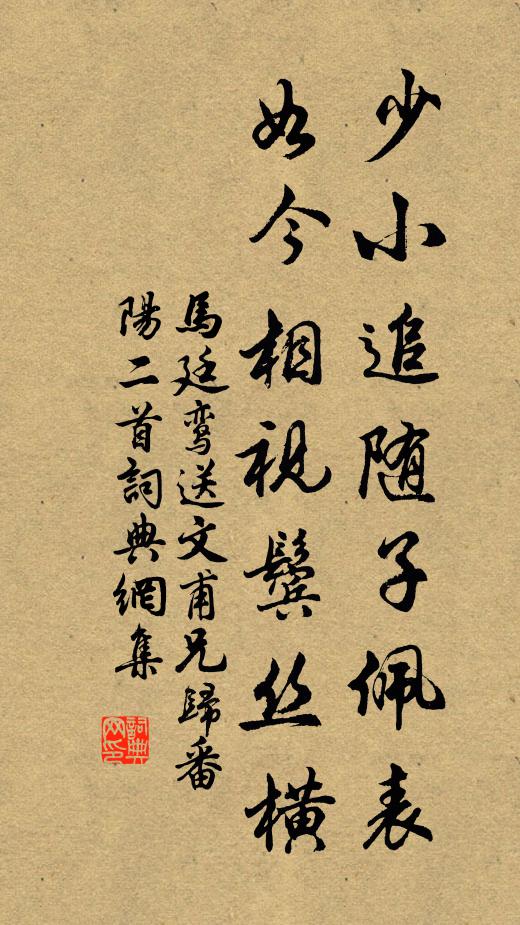 少小追随子佩表
如今相視鬓丝橫
馬廷鸾送文甫兄歸番
陽二首詞典網集
詞典
网印